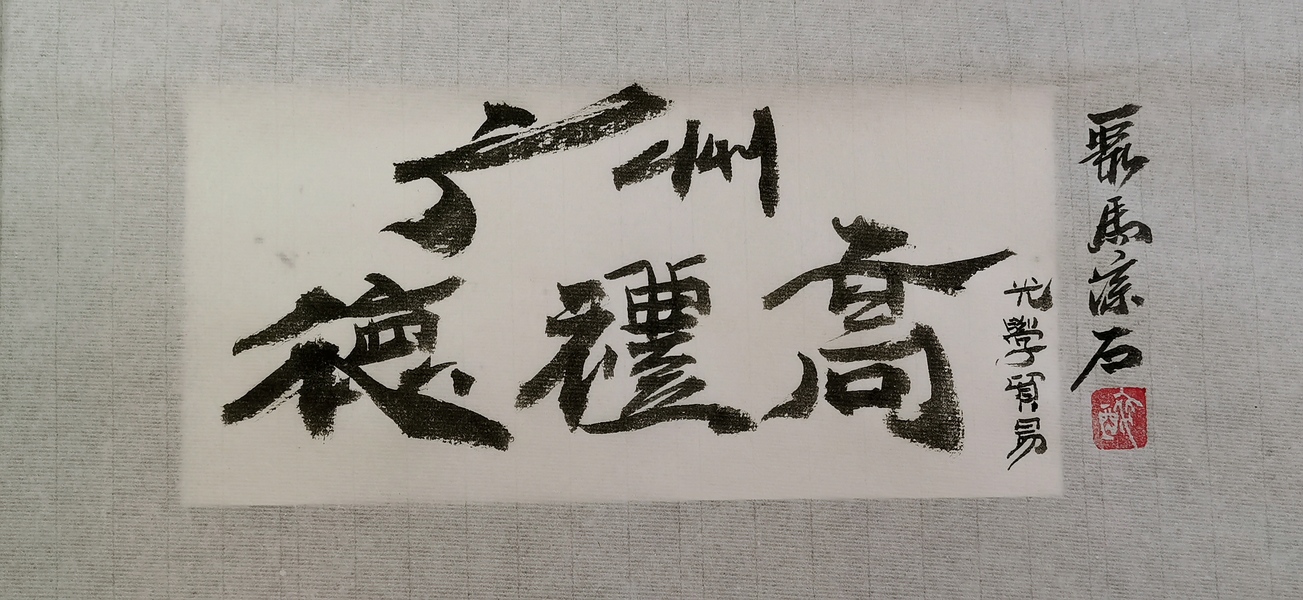 广州
德禮喬
光學貿易
馬 石